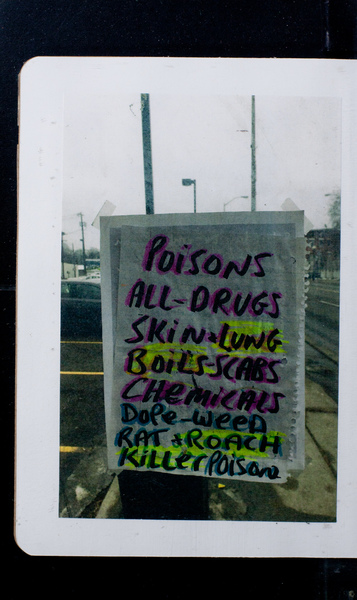 POiSONS
ALL-DRUGS
SKiN=LUNG
BOiLS-SCABS
CHEMiCALS
DOPE-WEED
RAT & ROACH
KiLLER POiSONS